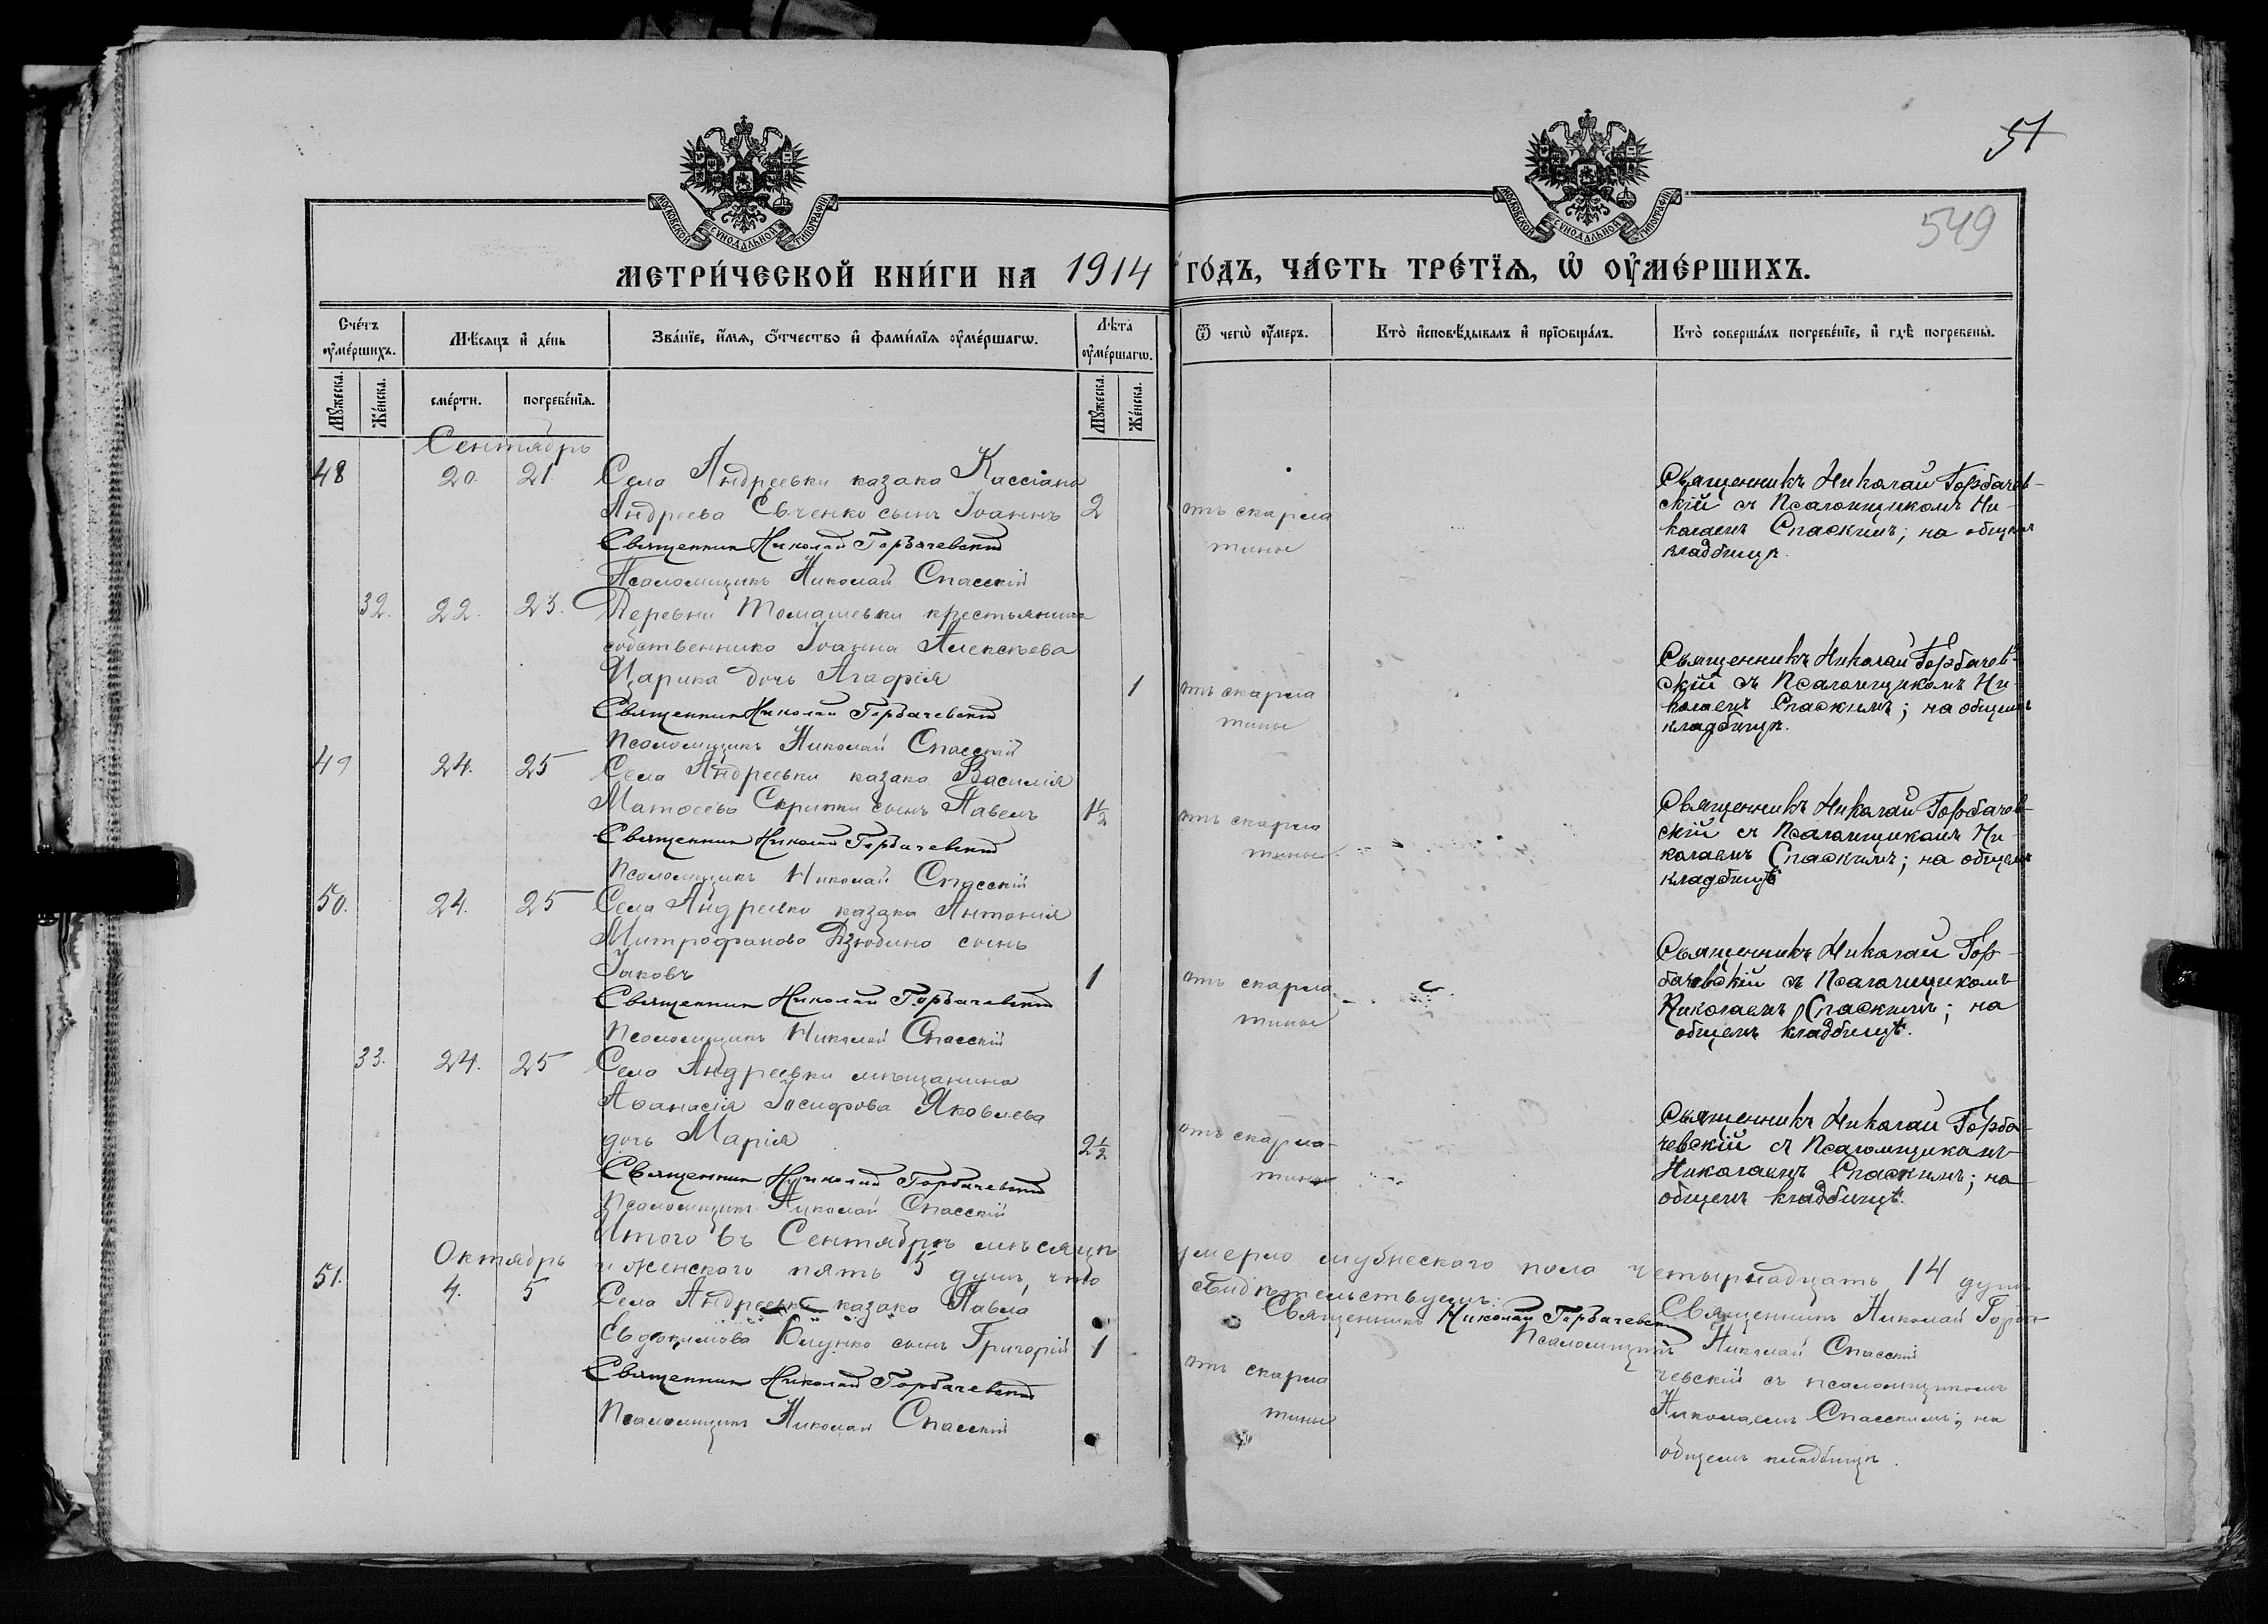 51
549
МОСКОВСКОЙ СѴНОДАЛЬНОЙ ТИПОГРАФІИ
МОСКОВСКОЙ СѴНОДАЛЬНОЙ ТИПОГРАФІИ
МЕТРИ́ЧЕСКОЙ КНИ́ГИ НА 1914 ГО́ДЪ, ЧА́СТЬ ТРЕ́ТЇѦ, Ѽ ОУ҆МЕ́РШИХЪ.
Сче́тъ оу҆ме́ршихъ.
Мꙋ́жеска.
Же́нска.
Мѣ́сѧцъ и҆ де́нь
сме́рти.
погребе́нїѧ.
Зва́нїе, и҆́мѧ, ѻ҆́тчество и҆ фами́лїѧ оу҆ме́ршагѡ.
Лѣ́та оу҆ме́ршагѡ.
Мꙋ́жеска.
Же́нска.
Ѿ чегѡ̀ оу҆́меръ.
Кто̀ и҆сповѣ́дывалъ и҆ прїѡбща́лъ.
Кто̀ соверша́лъ погребе́нїе, и҆ гдѣ̀ погребены̀.
Сентябрь
48 20. 21 Села Андреевки казака Кассіана
Андреева Евченко сынъ Іоаннъ 2 отъ скарла
тины
Священникъ Николай Горбачевскій
Псаломщикъ Николай Спасскій
Священникъ Николай Горбачев-
скій съ Псаломщикомъ Ни-
колаемъ Спаскимъ; на общемъ
кладбищѣ.
32. 22. 23. Деревни Томашевки крестьянина
собственника Іоанна Алексѣева
Царика дочь Агафія 1 отъ скарла
тины
Священникъ Николай Горбачевскій
Псаломщикъ Николай Спасскій
Священникъ Николай Горбачев-
скій съ Псаломщикомъ Ни-
колаемъ Спаскимъ; на общемъ
кладбищѣ.
49 24. 25 Села Андреевки казака Василія
Матѳеева Скрипки сынъ Павелъ 1½ отъ скарла
тины
Священникъ Николай Горбачевскій
Псаломщикъ Николай Спасскій
Священникъ Николай Горбачев-
скій съ Псаломщикомъ Ни-
колаемъ Спаскимъ; на общемъ
кладбищѣ
50. 24. 25 Села Андреевки казака Антонія
Митрофанова Дзюбина сынъ
Іаковъ 1 отъ скарла
тины
Священникъ Николай Горбачевскій
Псаломщикъ Николай Спасскій
Священникъ Николай Гор-
бачевскій съ Псаломщикомъ
Николаемъ Спаскимъ; на
общемъ кладбищѣ.
33. 24. 25 Села Андреевки мѣщанина
Аѳанасія Іосифова Яковлева
дочь Марія 2½ отъ скарла-
тины
Священникъ Николай Горбачевскій
Псаломщикъ Николай Спасскій
Священникъ Николай Горба-
чевскій съ Псаломщикомъ
Николаемъ Спаскимъ; на
общемъ кладбищѣ.
Итого въ Сентябрѣ мѣсяцѣ умерло мужескаго пола четырнадцать 14 душъ
и женскаго пять 5 душъ, что свидѣтельствуемъ:
Священникъ Николай Горбачевскій
Псаломщикъ Николай Спасскій
Октябрь
51. 4. 5 Села Андреевки казака Павла
Евдокимова сынъ Григорій 1 отъ скарла
тины
Священникъ Николай Горбачевскій
Псаломщикъ Николай Спасскій
Священникъ Николай Горба-
чевскій съ псаломщикомъ
Николаемъ Спасскимъ; на
общемъ кладбищѣ.